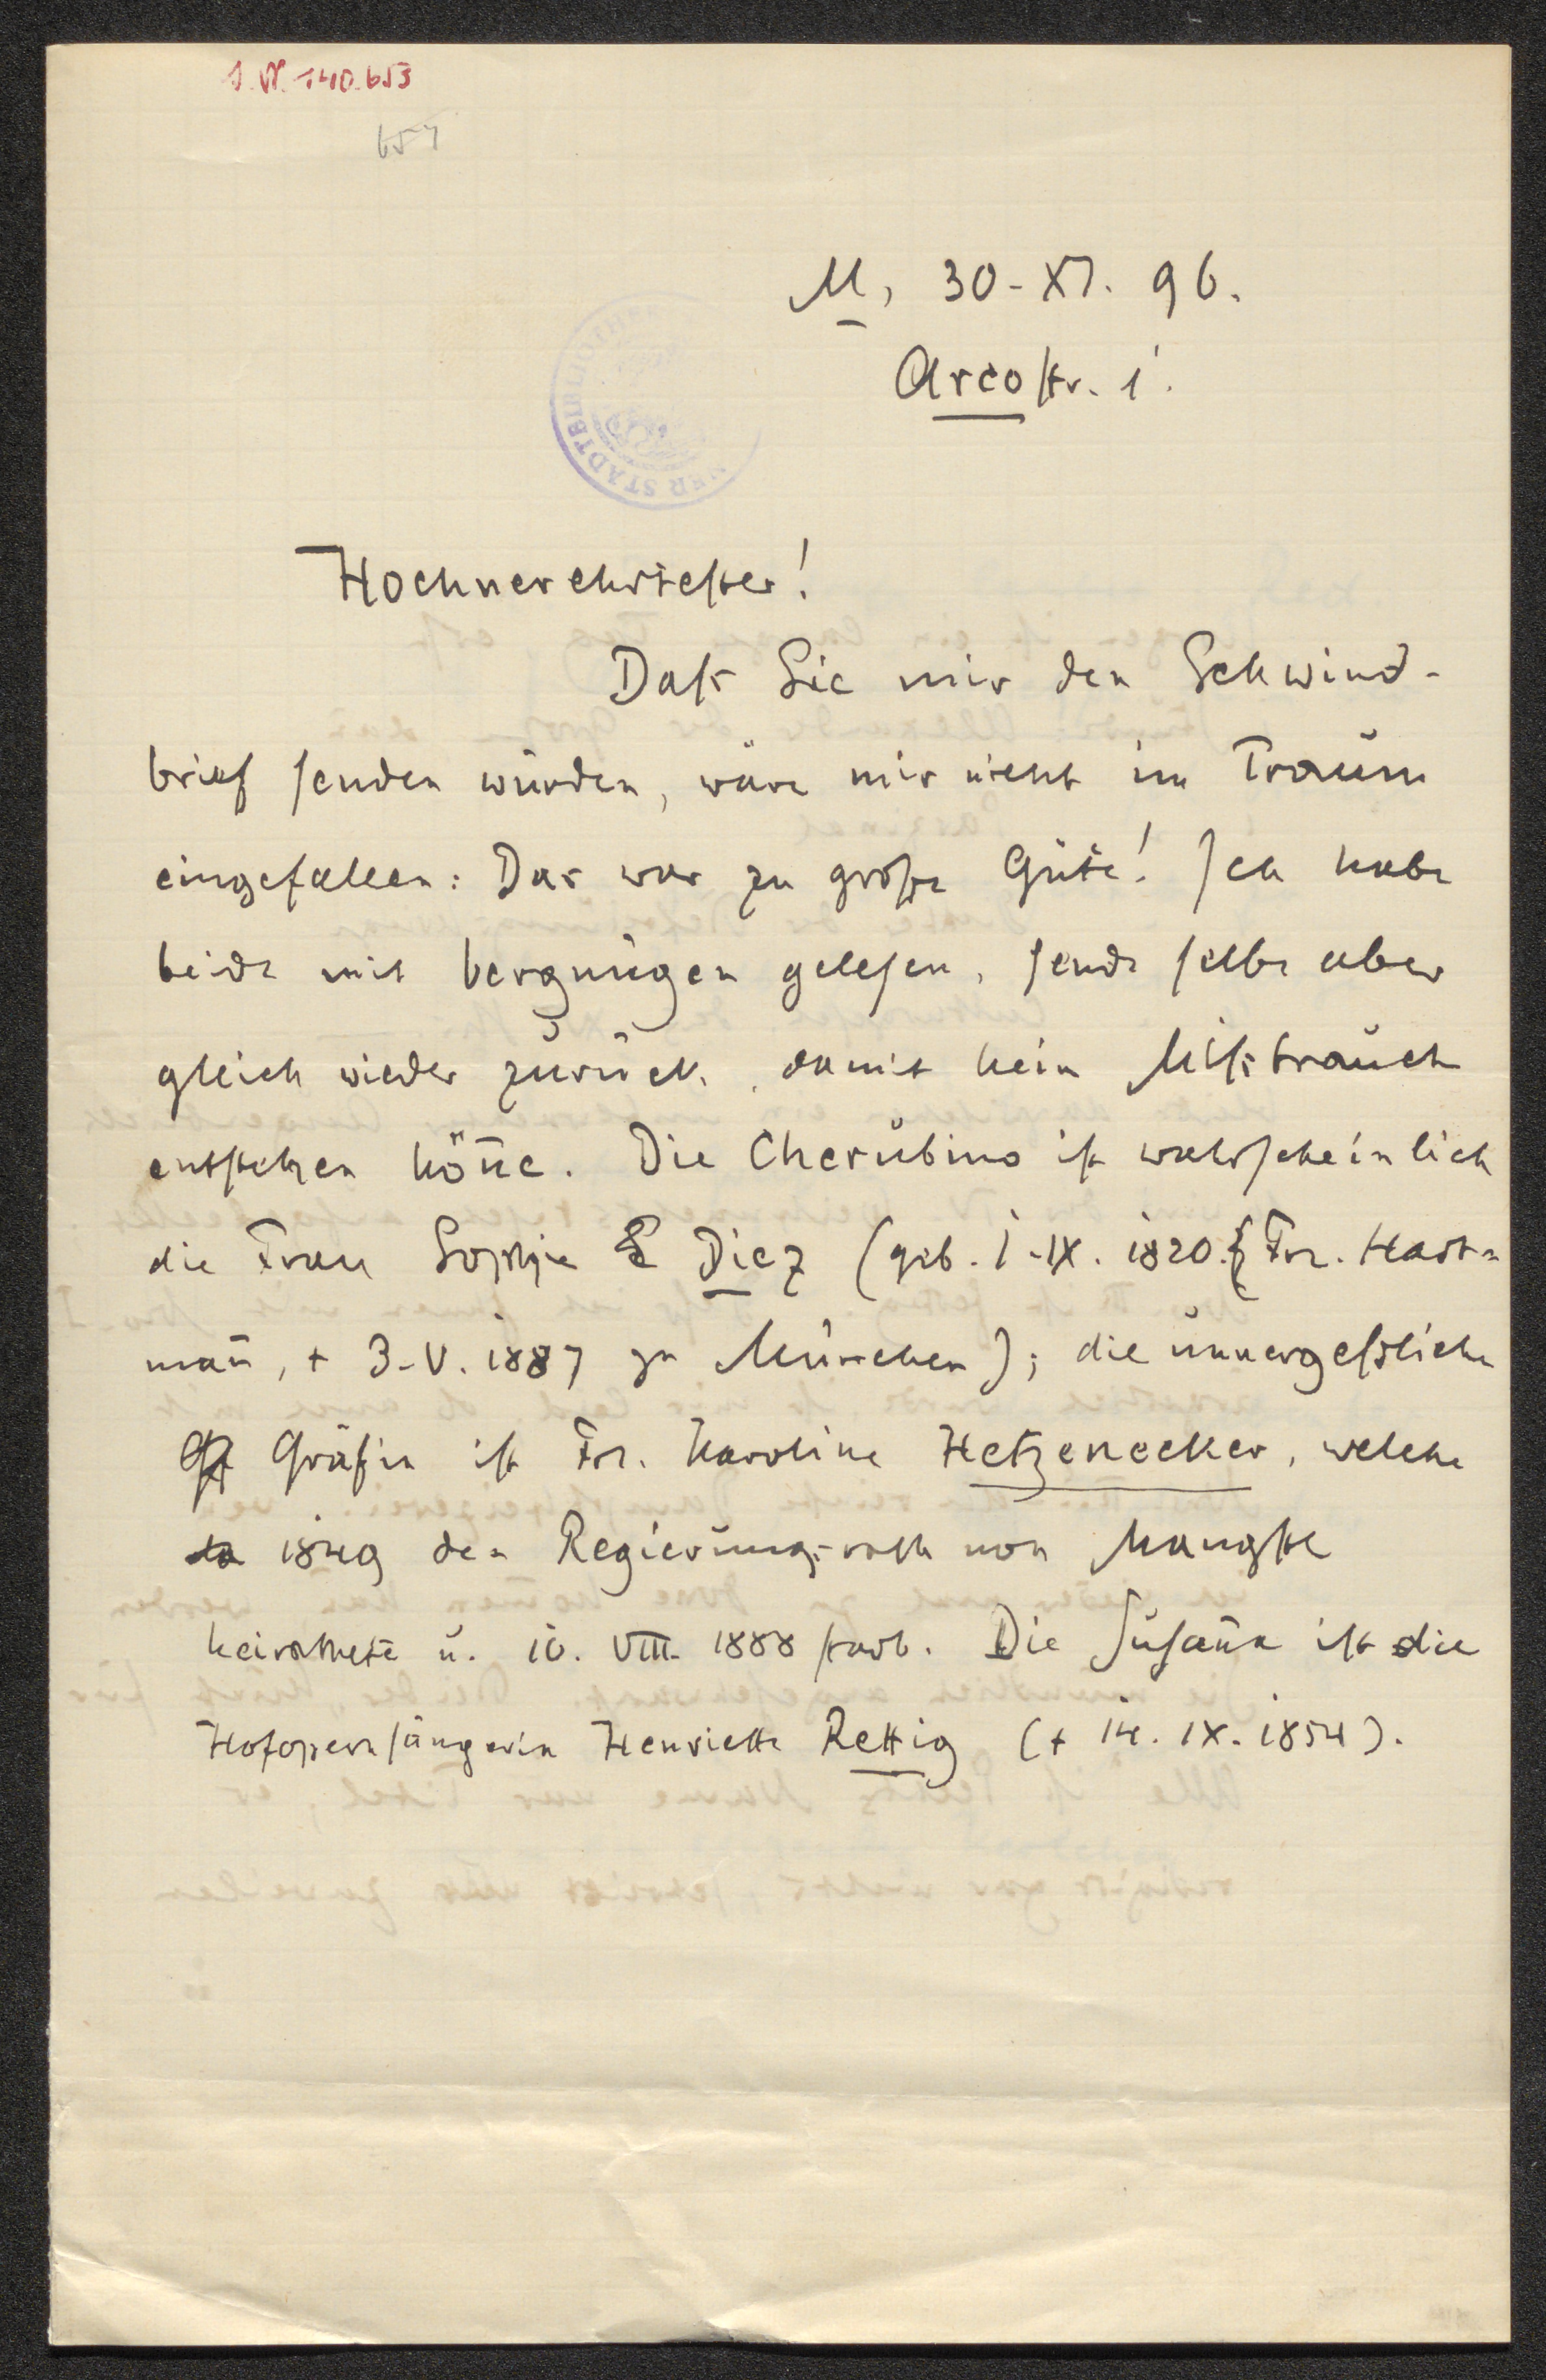 I.N. 140.653
657
M, 30-XI. 96.
Arcostr. 1.
Hochverehrtester!
Daß Sie mir den Schwind-
brief senden würden, wäre mir nicht im Traum
eingefallen: Das war zu große Güte! Ich habe
beide mit Vergnügen gelesen, sende selbe aber
gleich wieder zurück, damit kein Mißbrauch
entstehen köñe. Die Cherubino ist wahrscheinlich
die Frau Sophie Diez (geb. 1.IX. 1820. Frl. Hart-
mañ, + 3-V. 1887 zu München); die unvergeßliche
Gräfin ist Frl. Karoline Hetzenecker, welche
1849 den Regierungsrath von Mangstl
heirathete u. 10. VIII. 1888 starb. Die Susaña ist die
Hofopernsängerin Henriette Rettig (+ 14. IX. 1854).